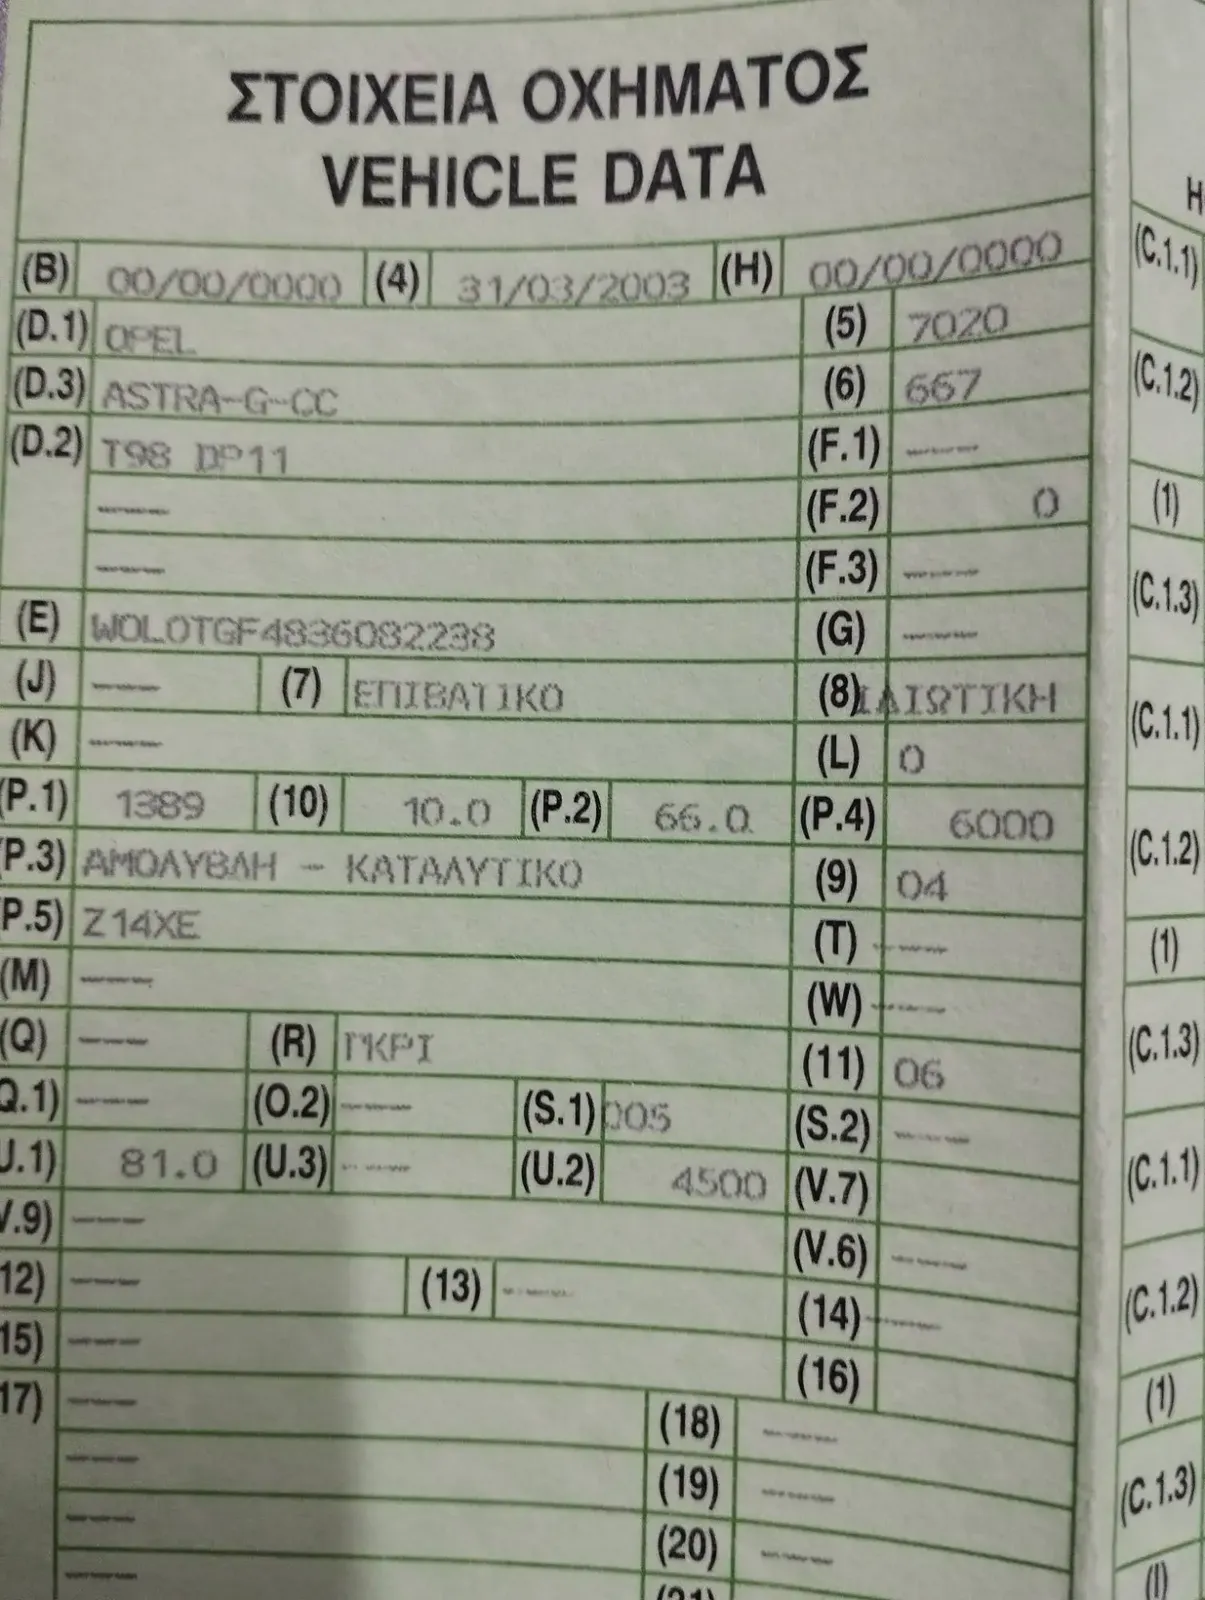 ΣΤΟΙΧΕΙΑ ΟΧΗΜΑΤΟΣ
VEHICLE DATA
(B) 00/00/0000 (4) 31/03/2003 (H) 00/00/0000
(D.1) OPEL (5) 7020
(D.3) ASTRA-G-CC (6) 667
(D.2) T98 DP11 (F.1) ----
---- (F.2) 0
---- (F.3) ----
(E) WOLOTGF4836082238 (G) ----
(J) ---- (7) ΕΠΙΒΑΤΙΚΟ (8) ΙΔΙΩΤΙΚΗ
(K) ---- (L) 0
(P.1) 1389 (10) 10.0 (P.2) 66.0 (P.4) 6000
(P.3) ΑΜΟΛΥΒΔΗ - ΚΑΤΑΛΥΤΙΚΟ (9) 04
(P.5) Z14XE (T) ----
(M) ---- (W) ----
(Q) ---- (R) ΓΚΡΙ (11) 06
Q.1) ---- (O.2) ---- (S.1) 005 (S.2) ----
U.1) 81.0 (U.3) ---- (U.2) 4500 (V.7)
V.9) ---- (V.6) ----
12) ---- (13) ---- (14) ----
15) ---- (16)
17) ---- (18) ----
---- (19) ----
---- (20) ----
---- (21)
H
(C.1.1)
(C.1.2)
(1)
(C.1.3)
(C.1.1)
(C.1.2)
(1)
(C.1.3)
(C.1.1)
(C.1.2)
(1)
(C.1.3)
(I)